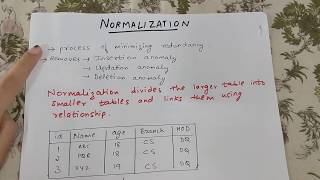 NORMALIZATION
→ process of minimizing redundancy
→ Removes → Insertion anomaly
→ Updation anomaly
→ Deletion anomaly
Normalization divides the larger table into
smaller tables and links them using
relationship.
id Name age Branch HOD
1 abc 18 CS DQ
2 PQR 18 CS DQ
3 xyz 19 CS DQ